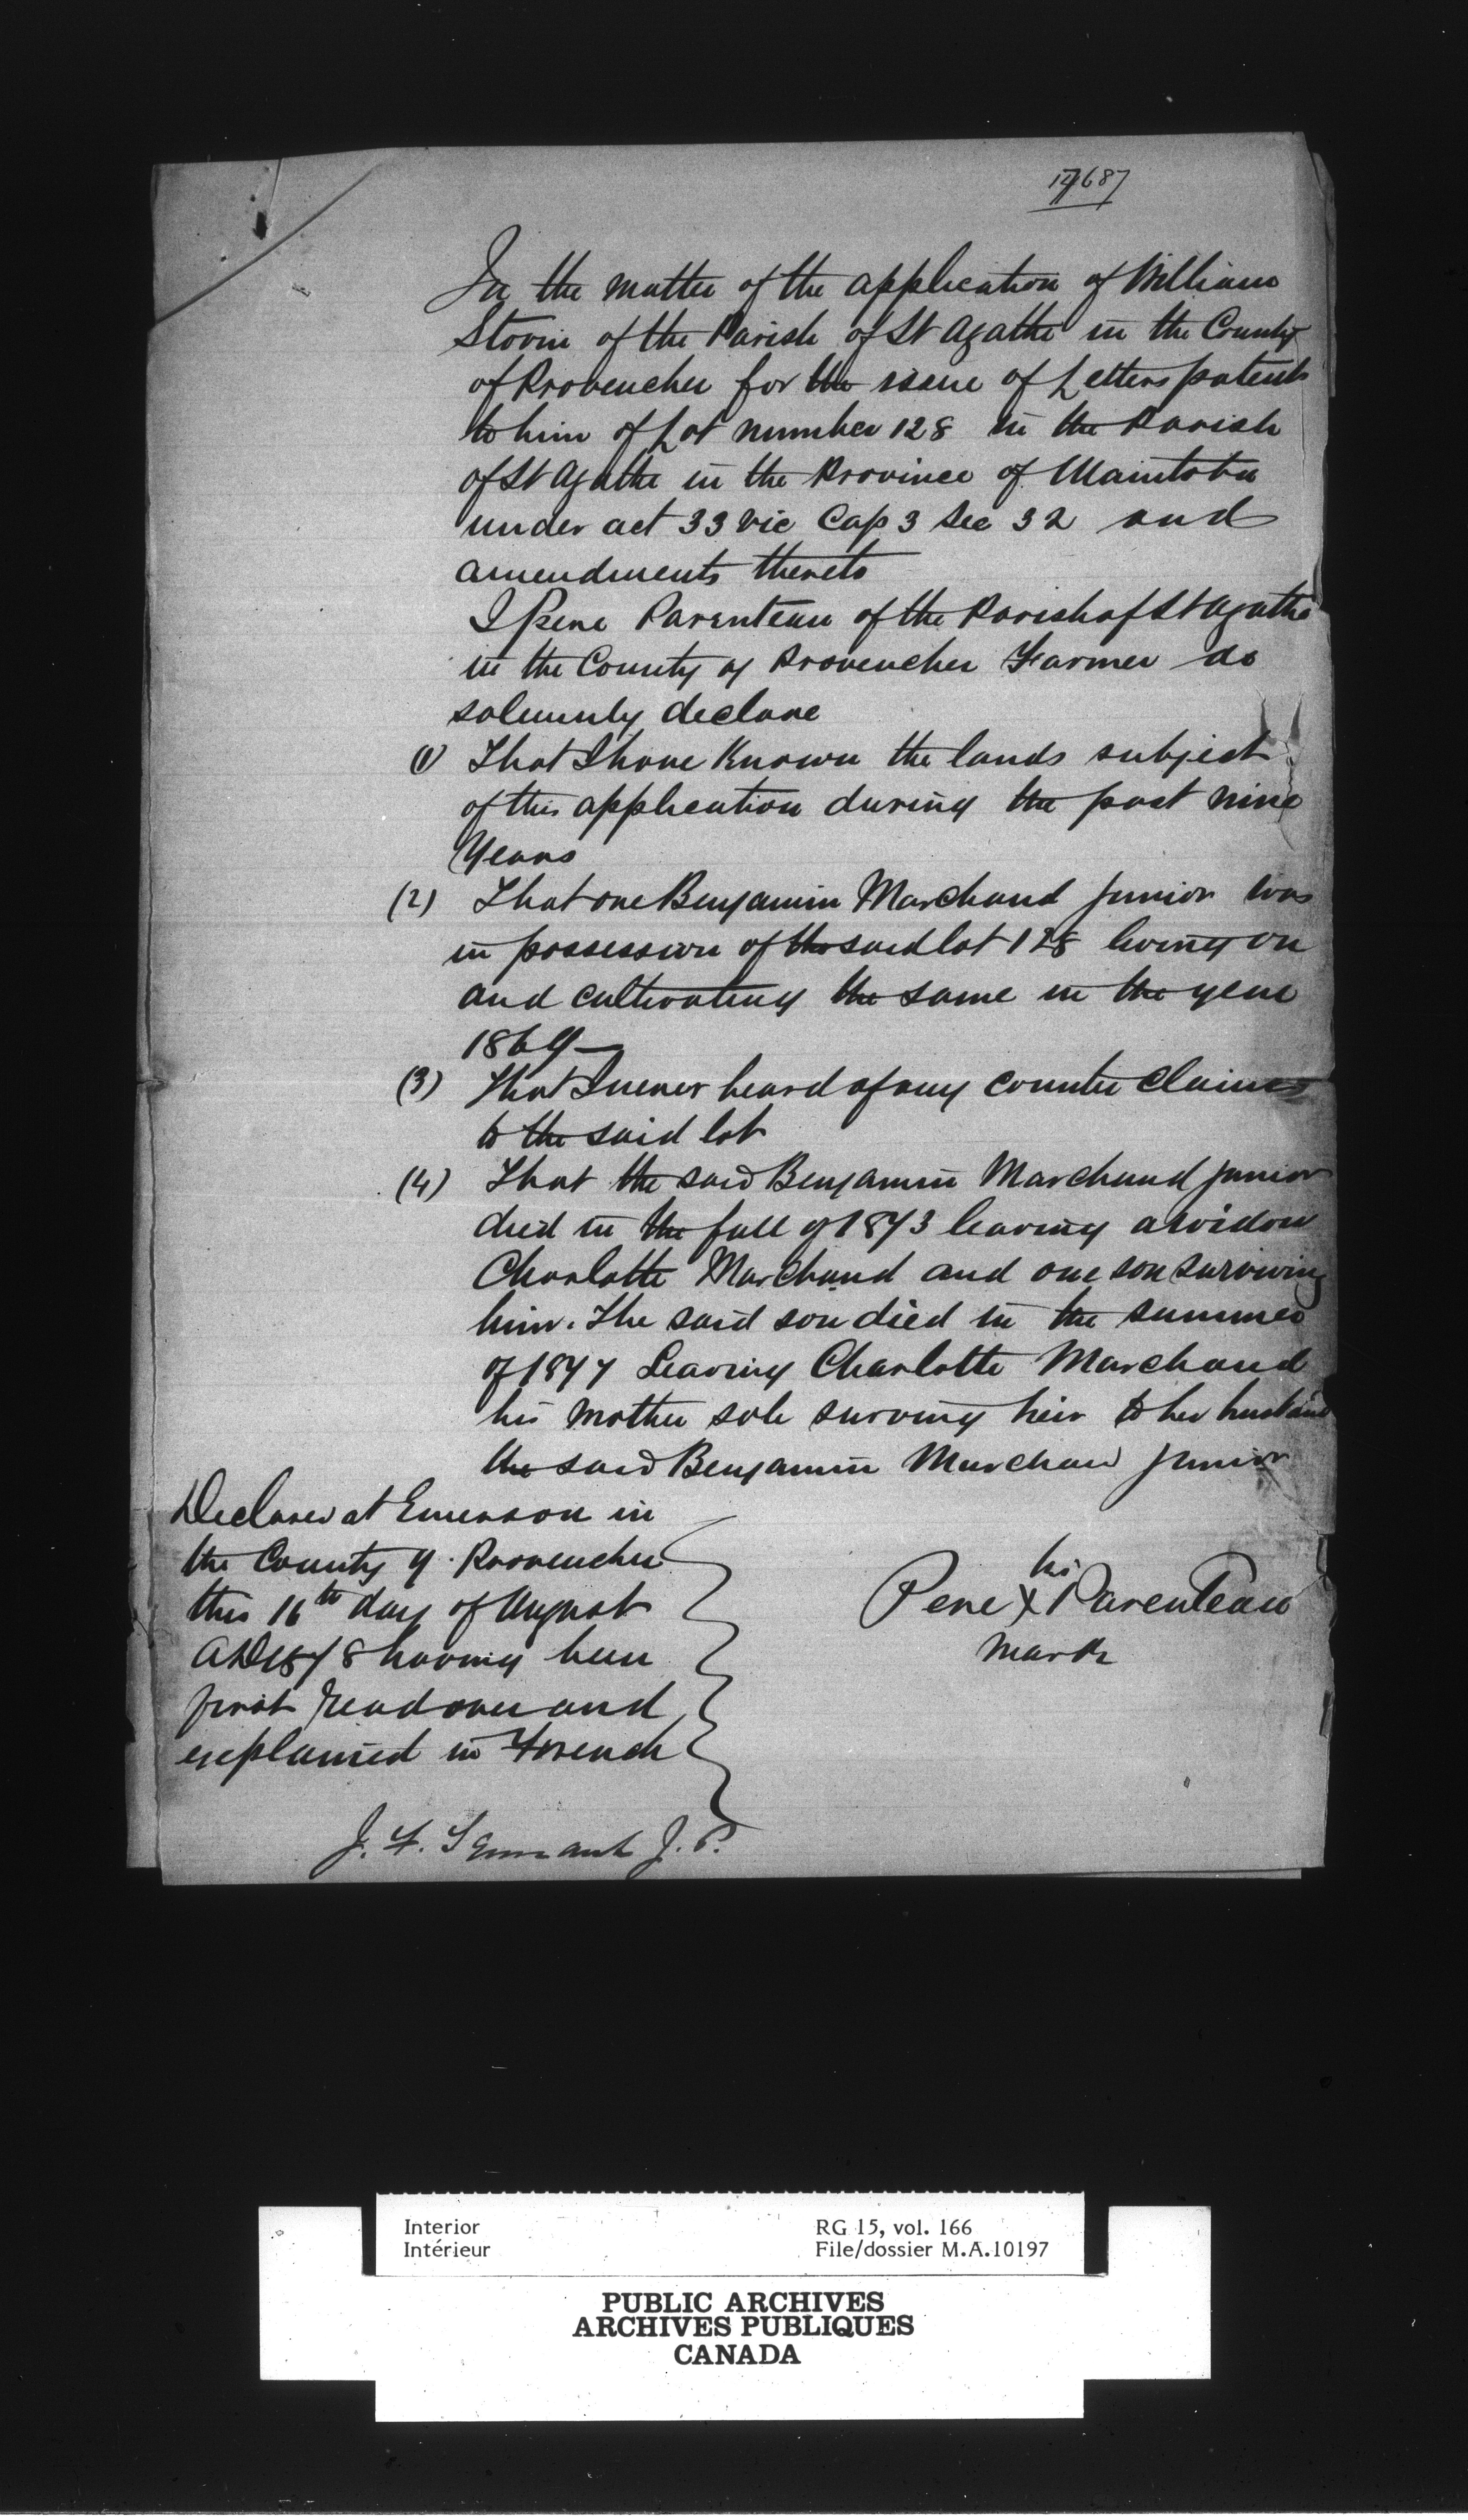 17687
In the matter of the application of William
Stovin of the Parish of St Agathe in the County
of Provencher for the issue of Letters patent
to him of Lot number 128 in the Parish
of St Agathe in the Province of Manitoba
under act 33 Vic Cap 3 Sec 32 and
amendments thereto
I Pere Parenteau of the Parish of St Agathe
in the County of Provencher Farmer do
solemnly declare
(1) That I have Known the lands subject
of this application during the past nine
Years
(2) That one Benjamin Marchand Junior was
in possession of the said lot 128 living on
and cultivating the same in the year
1869
(3) That I never heard of any counter claims
to the said lot
(4) That the said Benjamin Marchand junior
died in the fall of 1873 leaving a widow
Charlotte Marchand and one son surviving
him. The said son died in the summer
of 1877 Leaving Charlotte Marchand
his Mother sole surving heir to her husband
the said Benjamin Marchand Junior
Declared at Emerson in
the County of Provencher
this 16th day of August
AD 1878 having been
first read over and
explained in French
his
Pere X Parenteau
mark
J. F. Tennant J. P.
Interior
Intérieur
RG 15, vol. 166
File/dossier M.A.10197
PUBLIC ARCHIVES
ARCHIVES PUBLIQUES
CANADA